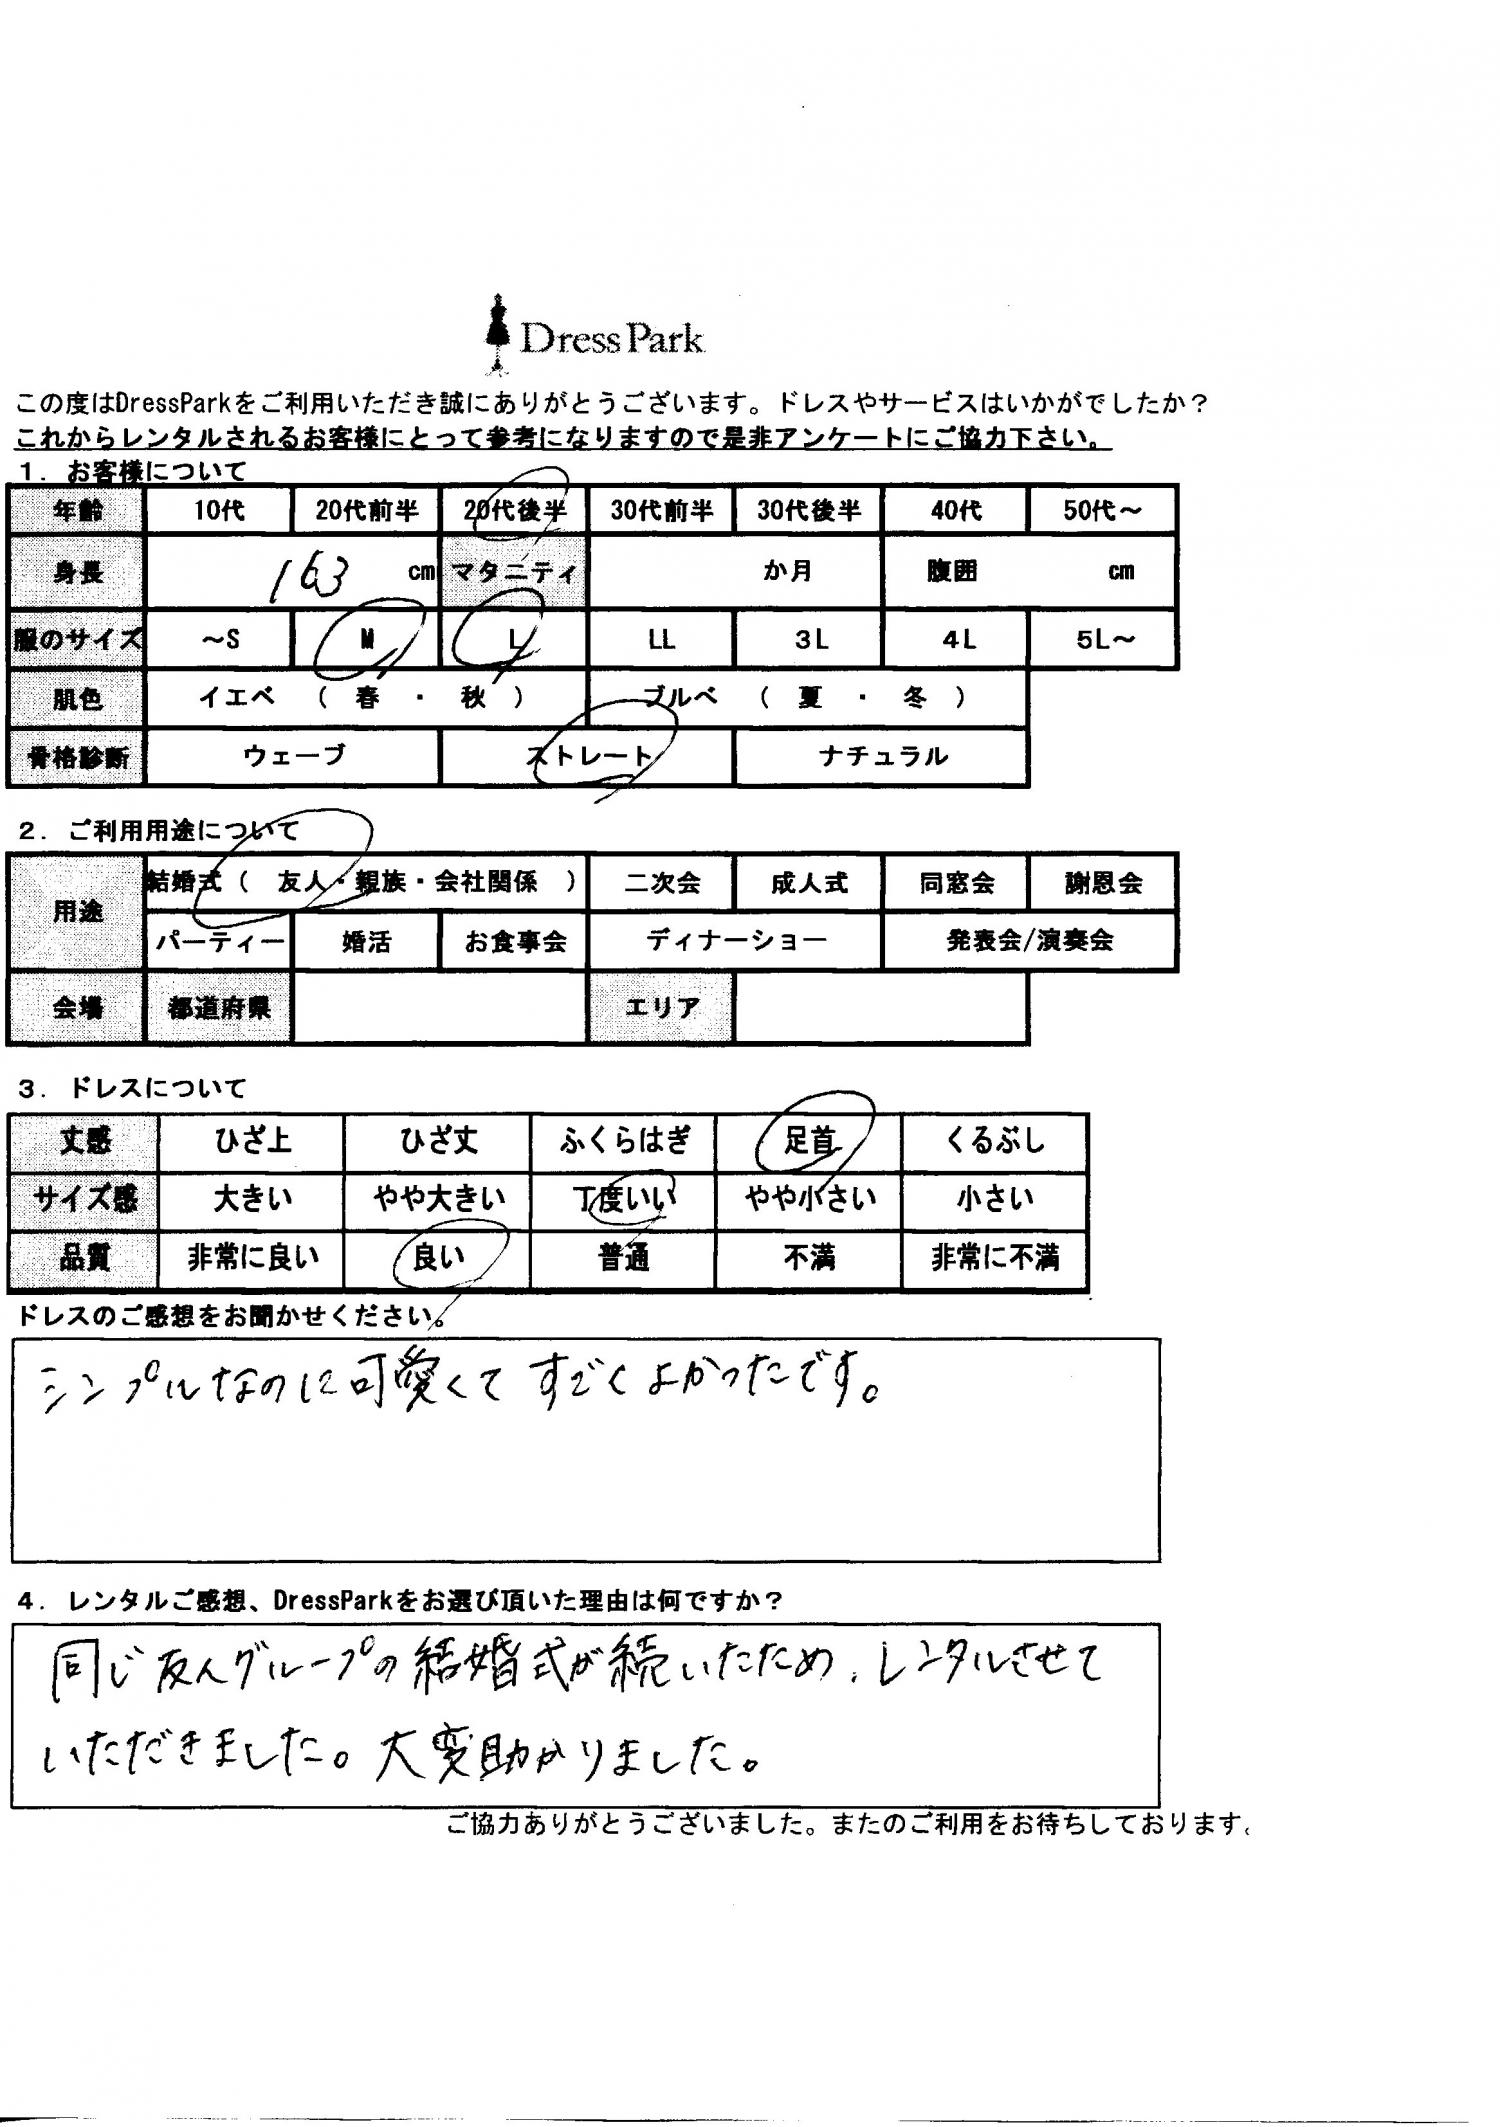 Dress Park
この度はDressParkをご利用いただき誠にありがとうございます。ドレスやサービスはいかがでしたか？
これからレンタルされるお客様にとって参考になりますので是非アンケートにご協力下さい。
１．お客様について
年齢 10代 20代前半 20代後半 30代前半 30代後半 40代 50代～
身長 163 cm マタニティ か月 腹囲 cm
服のサイズ ～S M L LL 3L 4L 5L～
肌色 イエベ （ 春 ・ 秋 ） ブルベ （ 夏 ・ 冬 ）
骨格診断 ウェーブ ストレート ナチュラル
２．ご利用用途について
用途 結婚式（ 友人・親族・会社関係 ） 二次会 成人式 同窓会 謝恩会
パーティー 婚活 お食事会 ディナーショー 発表会/演奏会
会場 都道府県 エリア
３．ドレスについて
丈感 ひざ上 ひざ丈 ふくらはぎ 足首 くるぶし
サイズ感 大きい やや大きい 丁度いい やや小さい 小さい
品質 非常に良い 良い 普通 不満 非常に不満
ドレスのご感想をお聞かせください。
シンプルなのに可愛くてすごくよかったです。
４．レンタルご感想、DressParkをお選び頂いた理由は何ですか？
同じ友人グループの結婚式が続いたため、レンタルさせて
いただきました。大変助かりました。
ご協力ありがとうございました。またのご利用をお待ちしております。